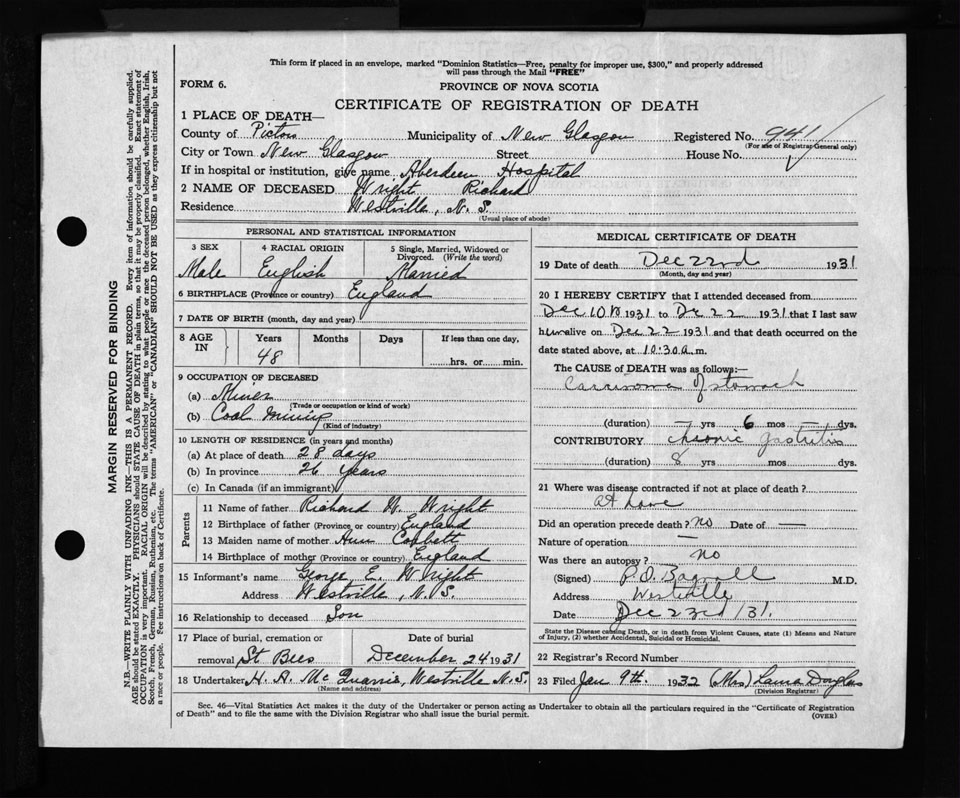 This form if placed in an envelope, marked "Dominion Statistics—Free, penalty for improper use, $300," and properly addressed
will pass through the Mail "FREE"
FORM 6.
PROVINCE OF NOVA SCOTIA
CERTIFICATE OF REGISTRATION OF DEATH
MARGIN RESERVED FOR BINDING
N.B.—WRITE PLAINLY WITH UNFADING INK—THIS IS A PERMANENT RECORD. Every item of information should be carefully supplied.
AGE should be stated EXACTLY. PHYSICIANS should STATE CAUSE OF DEATH in plain terms, so that it may be properly classified. Exact statement of
OCCUPATION is very important. RACIAL ORIGIN will be described by stating to what people or race the deceased person belonged, whether English, Irish,
Scotch, French, German, Russian, Ruthenian, etc. The terms "AMERICAN" or "CANADIAN" SHOULD NOT BE USED as they express citizenship but not
a race or people. See instructions on back of Certificate.
1 PLACE OF DEATH—
County of Pictou Municipality of New Glasgow Registered No. 941
(For use of Registrar-General only)
City or Town New Glasgow Street House No.
If in hospital or institution, give name Aberdeen Hospital
2 NAME OF DECEASED Wright Richard
Residence Westville, N. S.
(Usual place of abode)
PERSONAL AND STATISTICAL INFORMATION
3 SEX 4 RACIAL ORIGIN 5 Single, Married, Widowed or
Divorced. (Write the word)
Male English Married
6 BIRTHPLACE (Province or country) England
7 DATE OF BIRTH (month, day and year)
8 AGE IN Years Months Days If less than one day,
48 hrs. or min.
9 OCCUPATION OF DECEASED
(a) Miner
(Trade or occupation or kind of work)
(b) Coal mining
(Kind of industry)
10 LENGTH OF RESIDENCE (in years and months)
(a) At place of death 28 days
(b) In province 26 years
(c) In Canada (if an immigrant)
Parents
11 Name of father Richard W. Wright
12 Birthplace of father (Province or country) England
13 Maiden name of mother Corbett
14 Birthplace of mother (Province or country) England
15 Informant's name George E. Wright
Address Westville, N. S.
16 Relationship to deceased Son
17 Place of burial, cremation or Date of burial
removal St Bees December 24 1931
18 Undertaker H. A. McQuarrie, Westville N. S.
(Name and address)
MEDICAL CERTIFICATE OF DEATH
19 Date of death Dec 22nd 1931
(Month, day and year)
20 I HEREBY CERTIFY that I attended deceased from
Dec 10th 1931 to Dec 22 1931 that I last saw
him alive on Dec 22 1931 and that death occurred on the
date stated above, at 10:30 a.m.
The CAUSE OF DEATH was as follows:—
Carcinoma of stomach
(duration) — yrs 6 mos — dys.
CONTRIBUTORY chronic gastritis
(duration) 8 yrs mos dys.
21 Where was disease contracted if not at place of death?
at home
Did an operation precede death? no Date of —
Nature of operation —
Was there an autopsy? no
(Signed) P.D. Bagnall M.D.
Address Westville
Date Dec 23rd 31.
State the Disease causing Death, or in death from Violent Causes, state (1) Means and Nature
of Injury, (2) whether Accidental, Suicidal or Homicidal.
22 Registrar's Record Number
23 Filed Jan 9th. 1932 (Mrs) Laura Douglas
(Division Registrar)
Sec. 46—Vital Statistics Act makes it the duty of the Undertaker or person acting as Undertaker to obtain all the particulars required in the "Certificate of Registration
of Death" and to file the same with the Division Registrar who shall issue the burial permit.
(OVER)